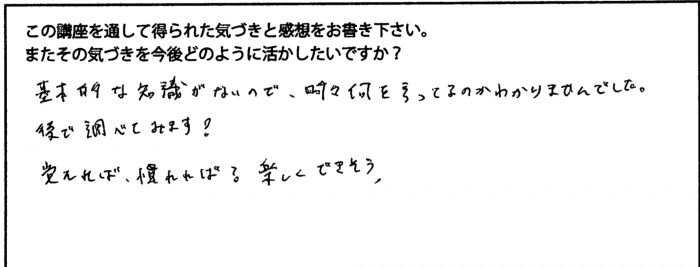 この講座を通して得られた気づきと感想をお書き下さい。
またその気づきを今後どのように活かしたいですか？
基本的な知識がないので、時々何を言ってるのかわかりませんでした。
後で調べてみます！
覚えれば、慣れれば。楽しくできそう、